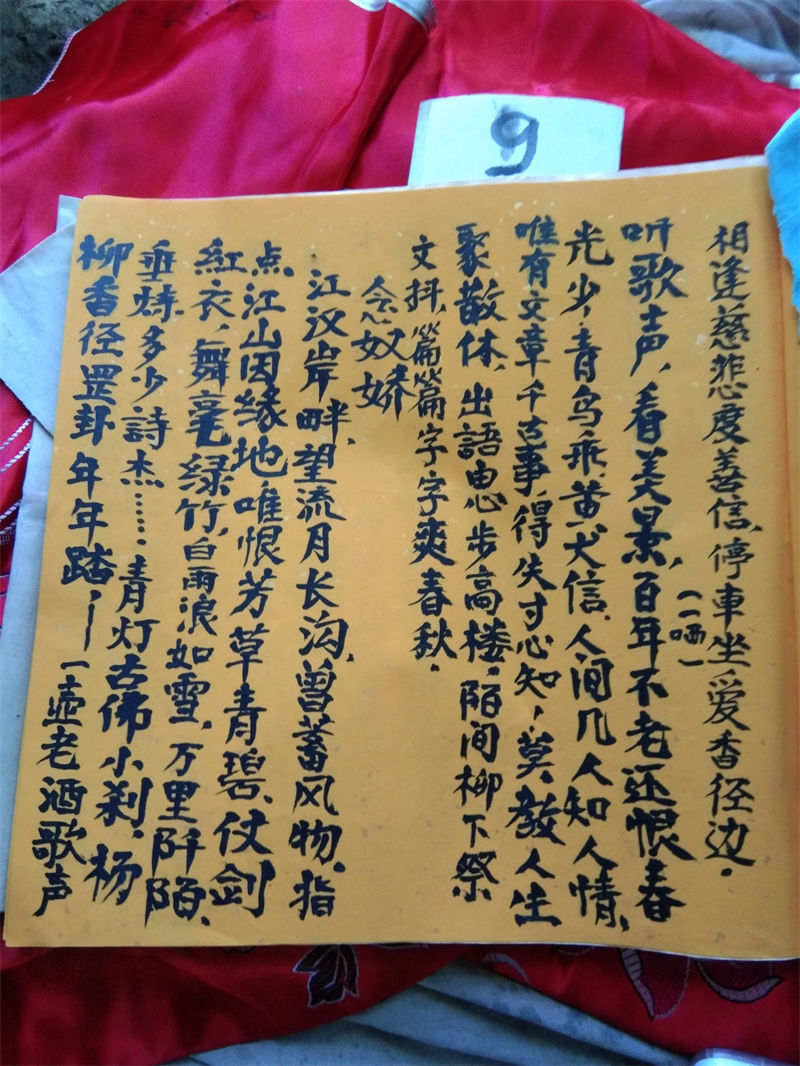 9
相逢慈悲度善信,停車坐爱香径边。
(一哂)
听歌声,看美景,百年不老还恨春
光少,青鸟乘黄犬信,人间几人知人情,
唯有文章千古事,得失寸心知,莫教人生
聚散休,出語由心步高楼,陌间柳下祭
文抖,篇篇字字爽春秋.
念奴娇
江汉岸畔,望流月长沟,曾蓄风物.指
点江山因缘地,唯恨芳草青碧、仗剑
紅衣、舞毫绿竹,白雨浪如雪,万里阡陌、
垂炜多少詩杰……青灯古佛小刹,杨
柳香径罡卦年年踏,——一壶老酒歌声